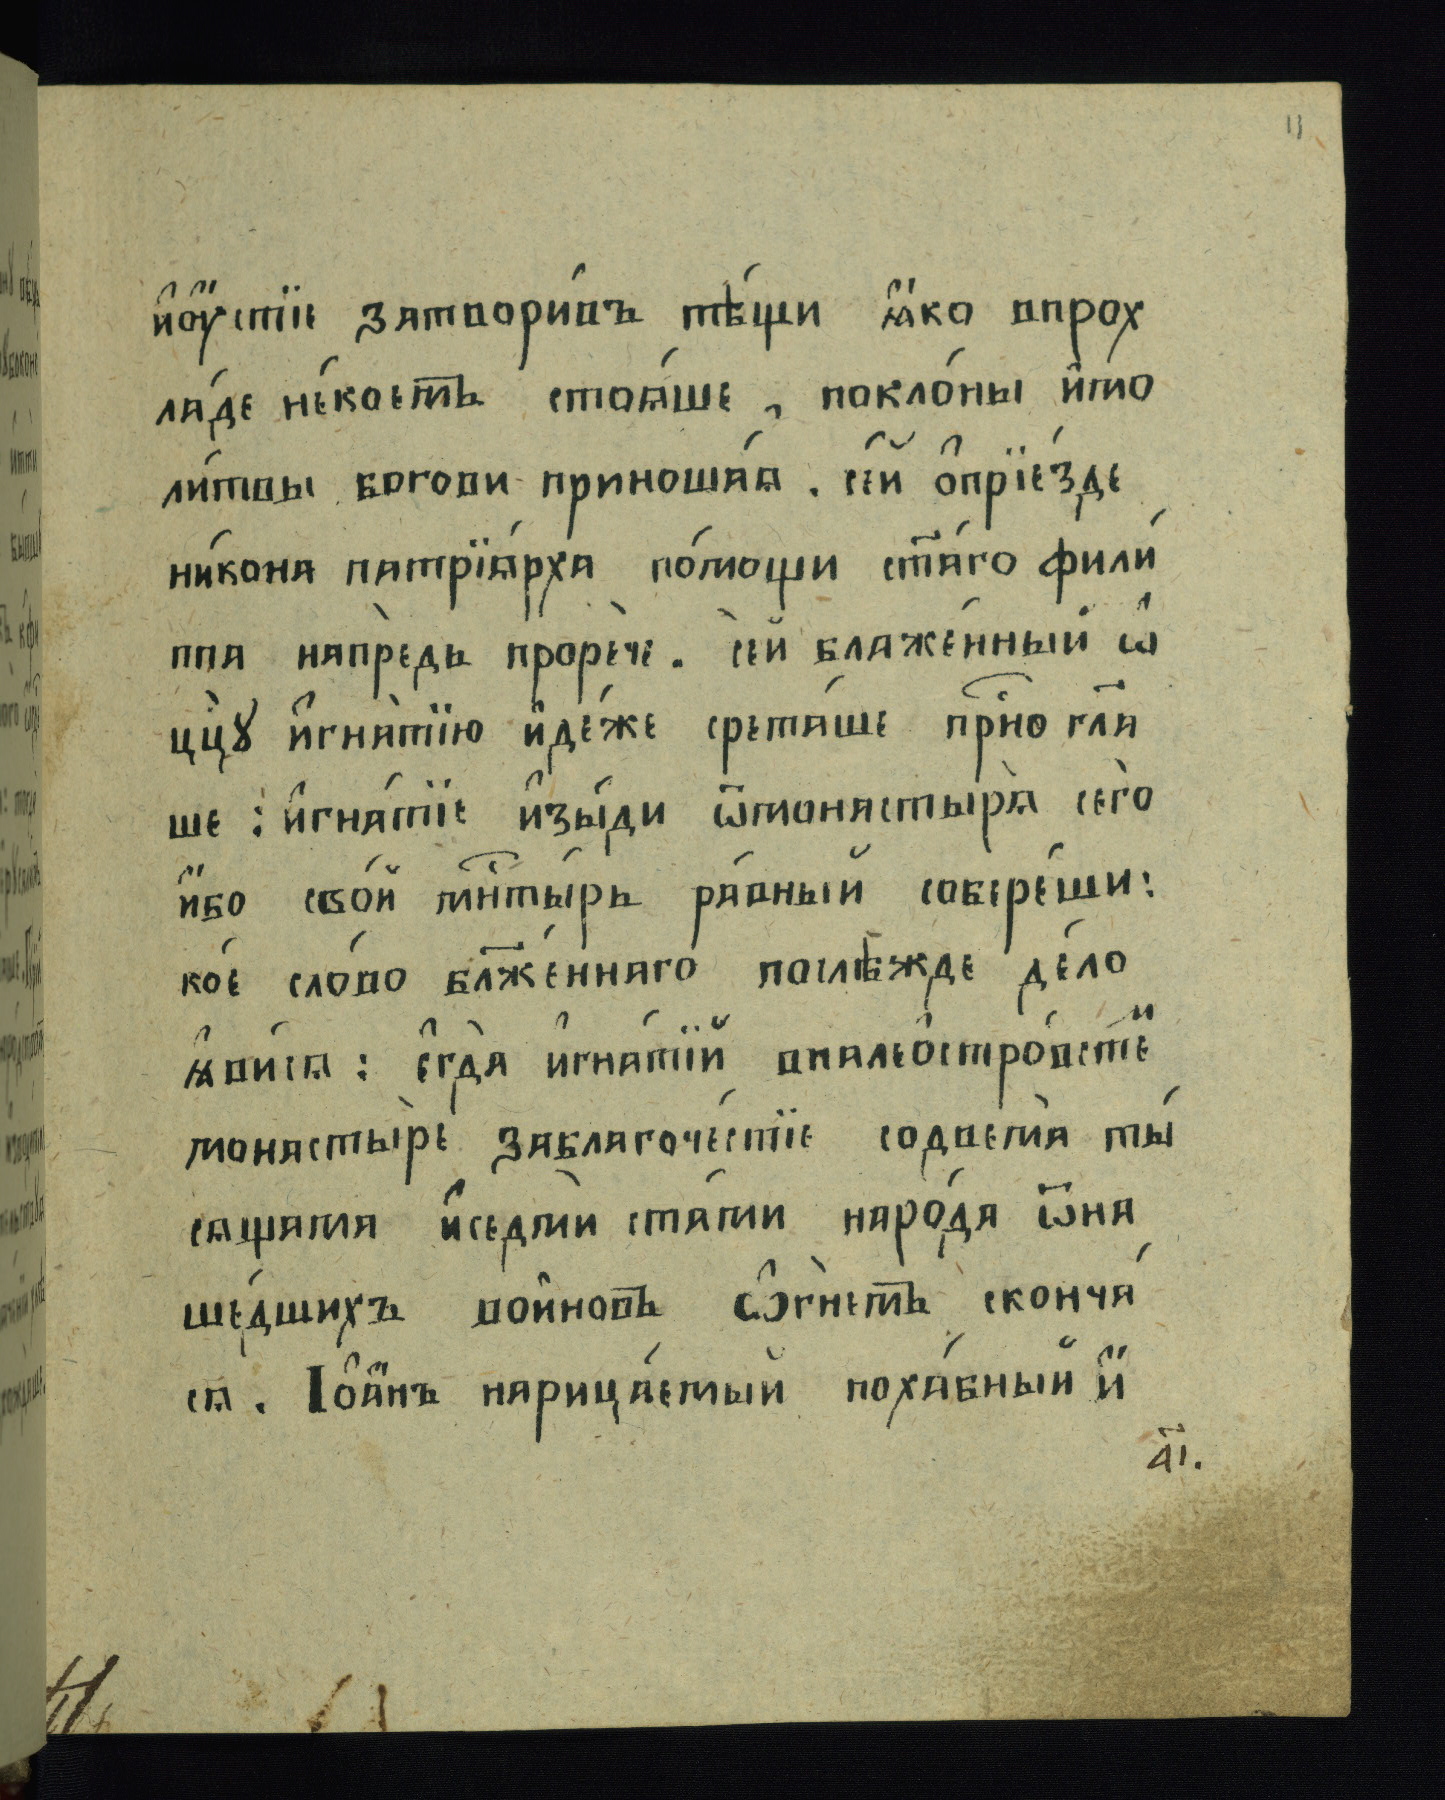 11
и҆оу҆́стїе затвори́въ пѣ́щи ꙗ҆́ко впрох
ла́де не́коемъ стоѧ́ше, покло́ны и҆мо
ли́твы богови приноша́ѧ. се́й ѡ҆прїе́зде
ни́кона патрїа́рха по́мощи ст҃а́го фили́
ппа напре́дь проре́че. се́й блаже́нный ѡ҆
ц҃цꙋ̀ и҆гна́тїю и҆де́же срета́ше при́но гл҃а
ше: и҆гна́тїе и҆зы́ди ѿмонастырѧ̀ сего̀
и҆́бо сво́й мн҃ты́рь ра́вный собере́ши:
ко́е сло́во бл҃же́ннаго послѣ́жде де́ло
ꙗ҆ви́сѧ: е҆гда̀ и҆гна́тїй впалео҆стро́встѣ́й
монасты́ре заблагоче́стїе содвема̀ ты́
сѧщама и҆́седми́ ста́ми наро́да ѿна
ше́дшихъ вои҆новъ ѡ҆гне́мъ сконча́
сѧ. Іѡ҆а́ннъ нарица́емый поха́бный и҆́
а҃і.